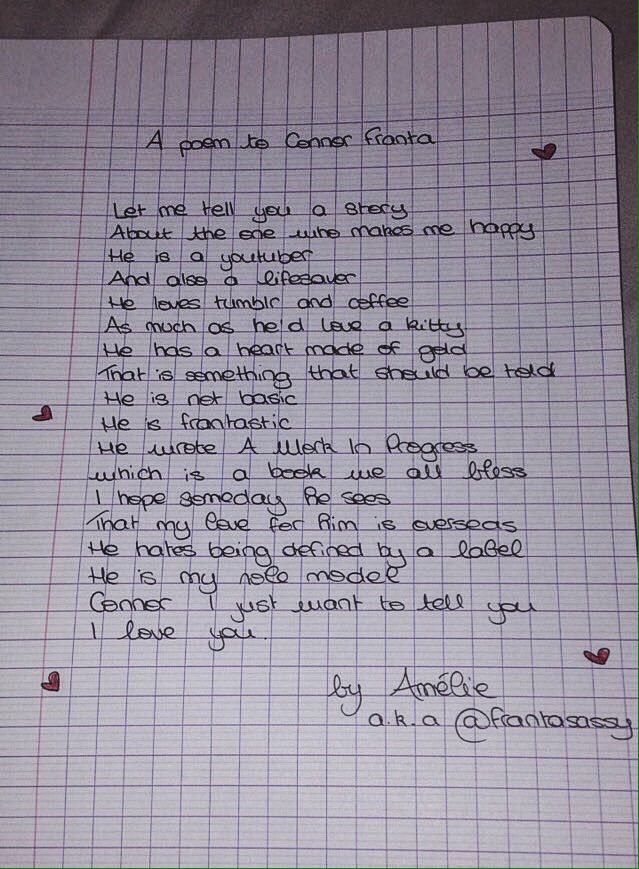 A poem to Connor Franta
Let me tell you a story
About the one who makes me happy
He is a youtuber
And also a lifesaver
He loves tumblr and coffee
As much as he'd love a kitty
He has a heart made of gold
That is something that should be told
He is not basic
He is frantastic
He wrote A Work In Progress
which is a book we all bless
I hope someday he sees
That my love for him is overseas
He hates being defined by a label
He is my role model
Connor I just want to tell you
I love you.
by Amélie
a.k.a @frantasassy